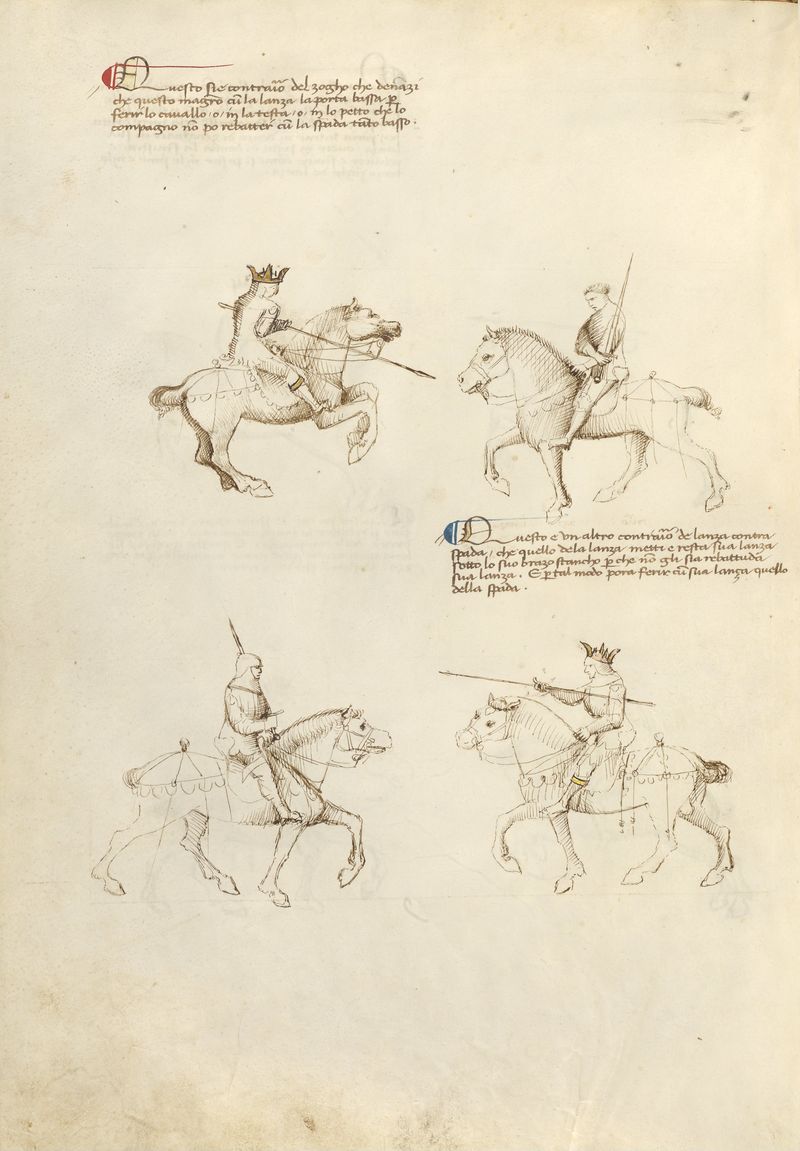 Questo sie contraio del zogho che denãzi
che questo magro cũ la lanza la porta bassa p
ferir lo cavallo /o/ in la testa /o/ in lo petto che lo
compagno nõ po rebatter cũ la spada tãto basso.
Questo e un altro contraio de lanza contra
spada / che quello dela lanza mette e resta sua lanza
sotto lo suo brazo stancho p che nõ gli sia rebattuda
sua lanza. E p tal modo pora ferir cũ sua lança quello
della spada.